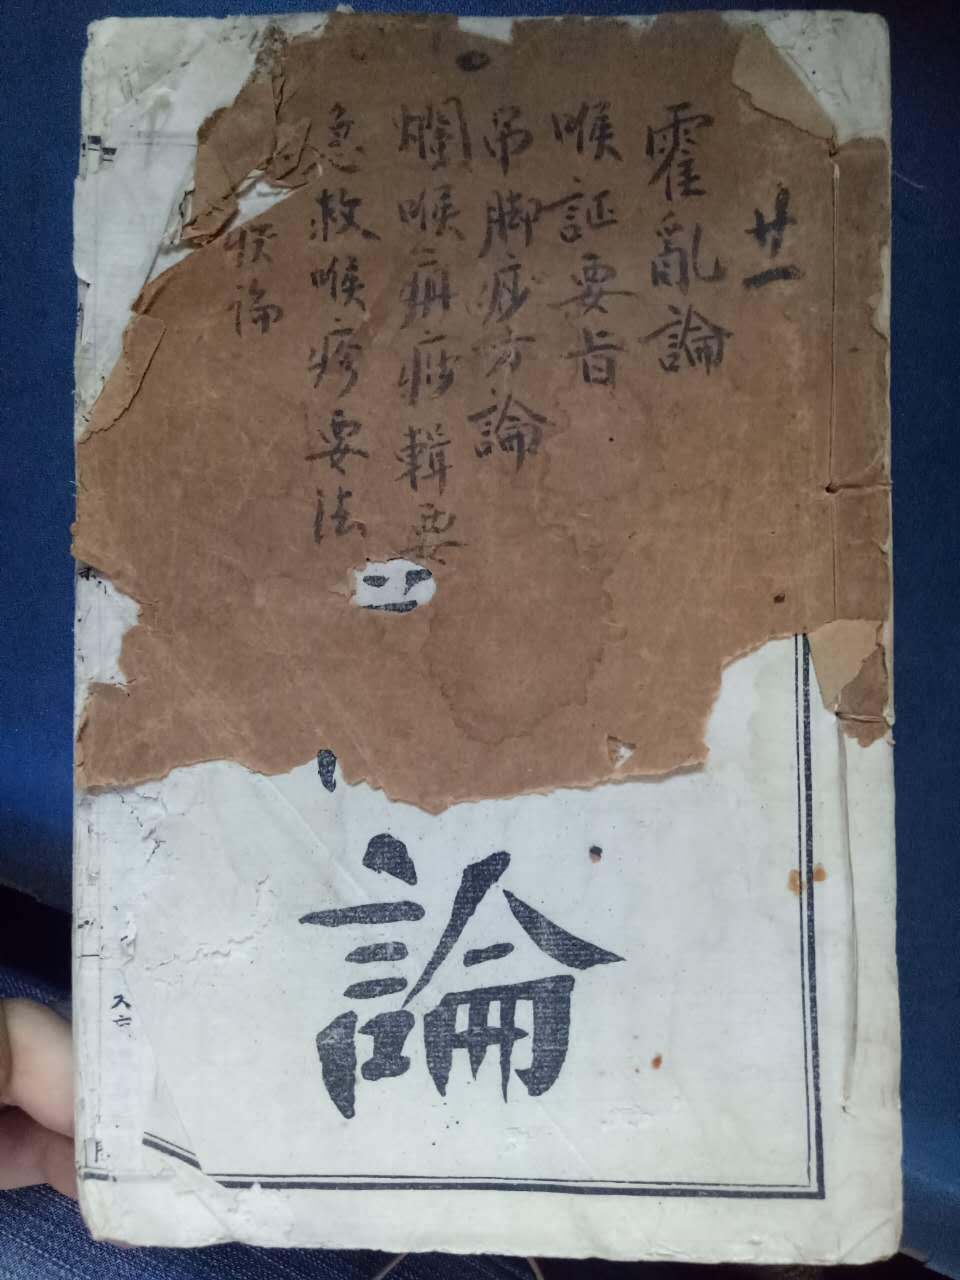 廿一
霍亂論
喉証要旨
吊脚痧方論
爛喉痧輯要
急救喉疹要法
論
論